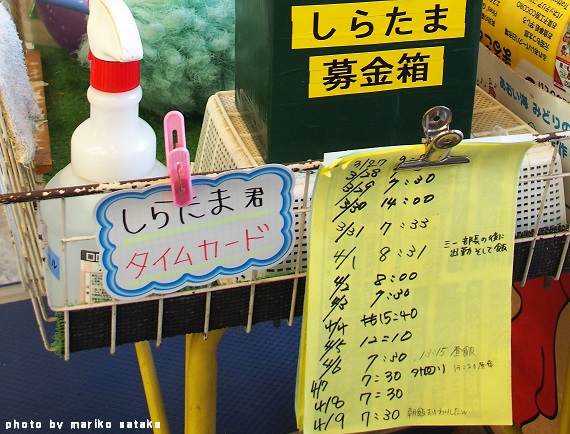 しらたま
募金箱
しらたま君
タイムカード
3/27
3/28
3/29 7:30
3/30 14:00
3/31 7:33
4/1 8:31
三一部長の後に
出勤そして飯
4/2 8:00
4/3 7:30
4/4 15:40
4/5 12:10
4/6 7:30
4/7 7:30 外回り
4/8 7:30
4/9 7:30 朝飯おかわりしたw
photo by mariko sataka